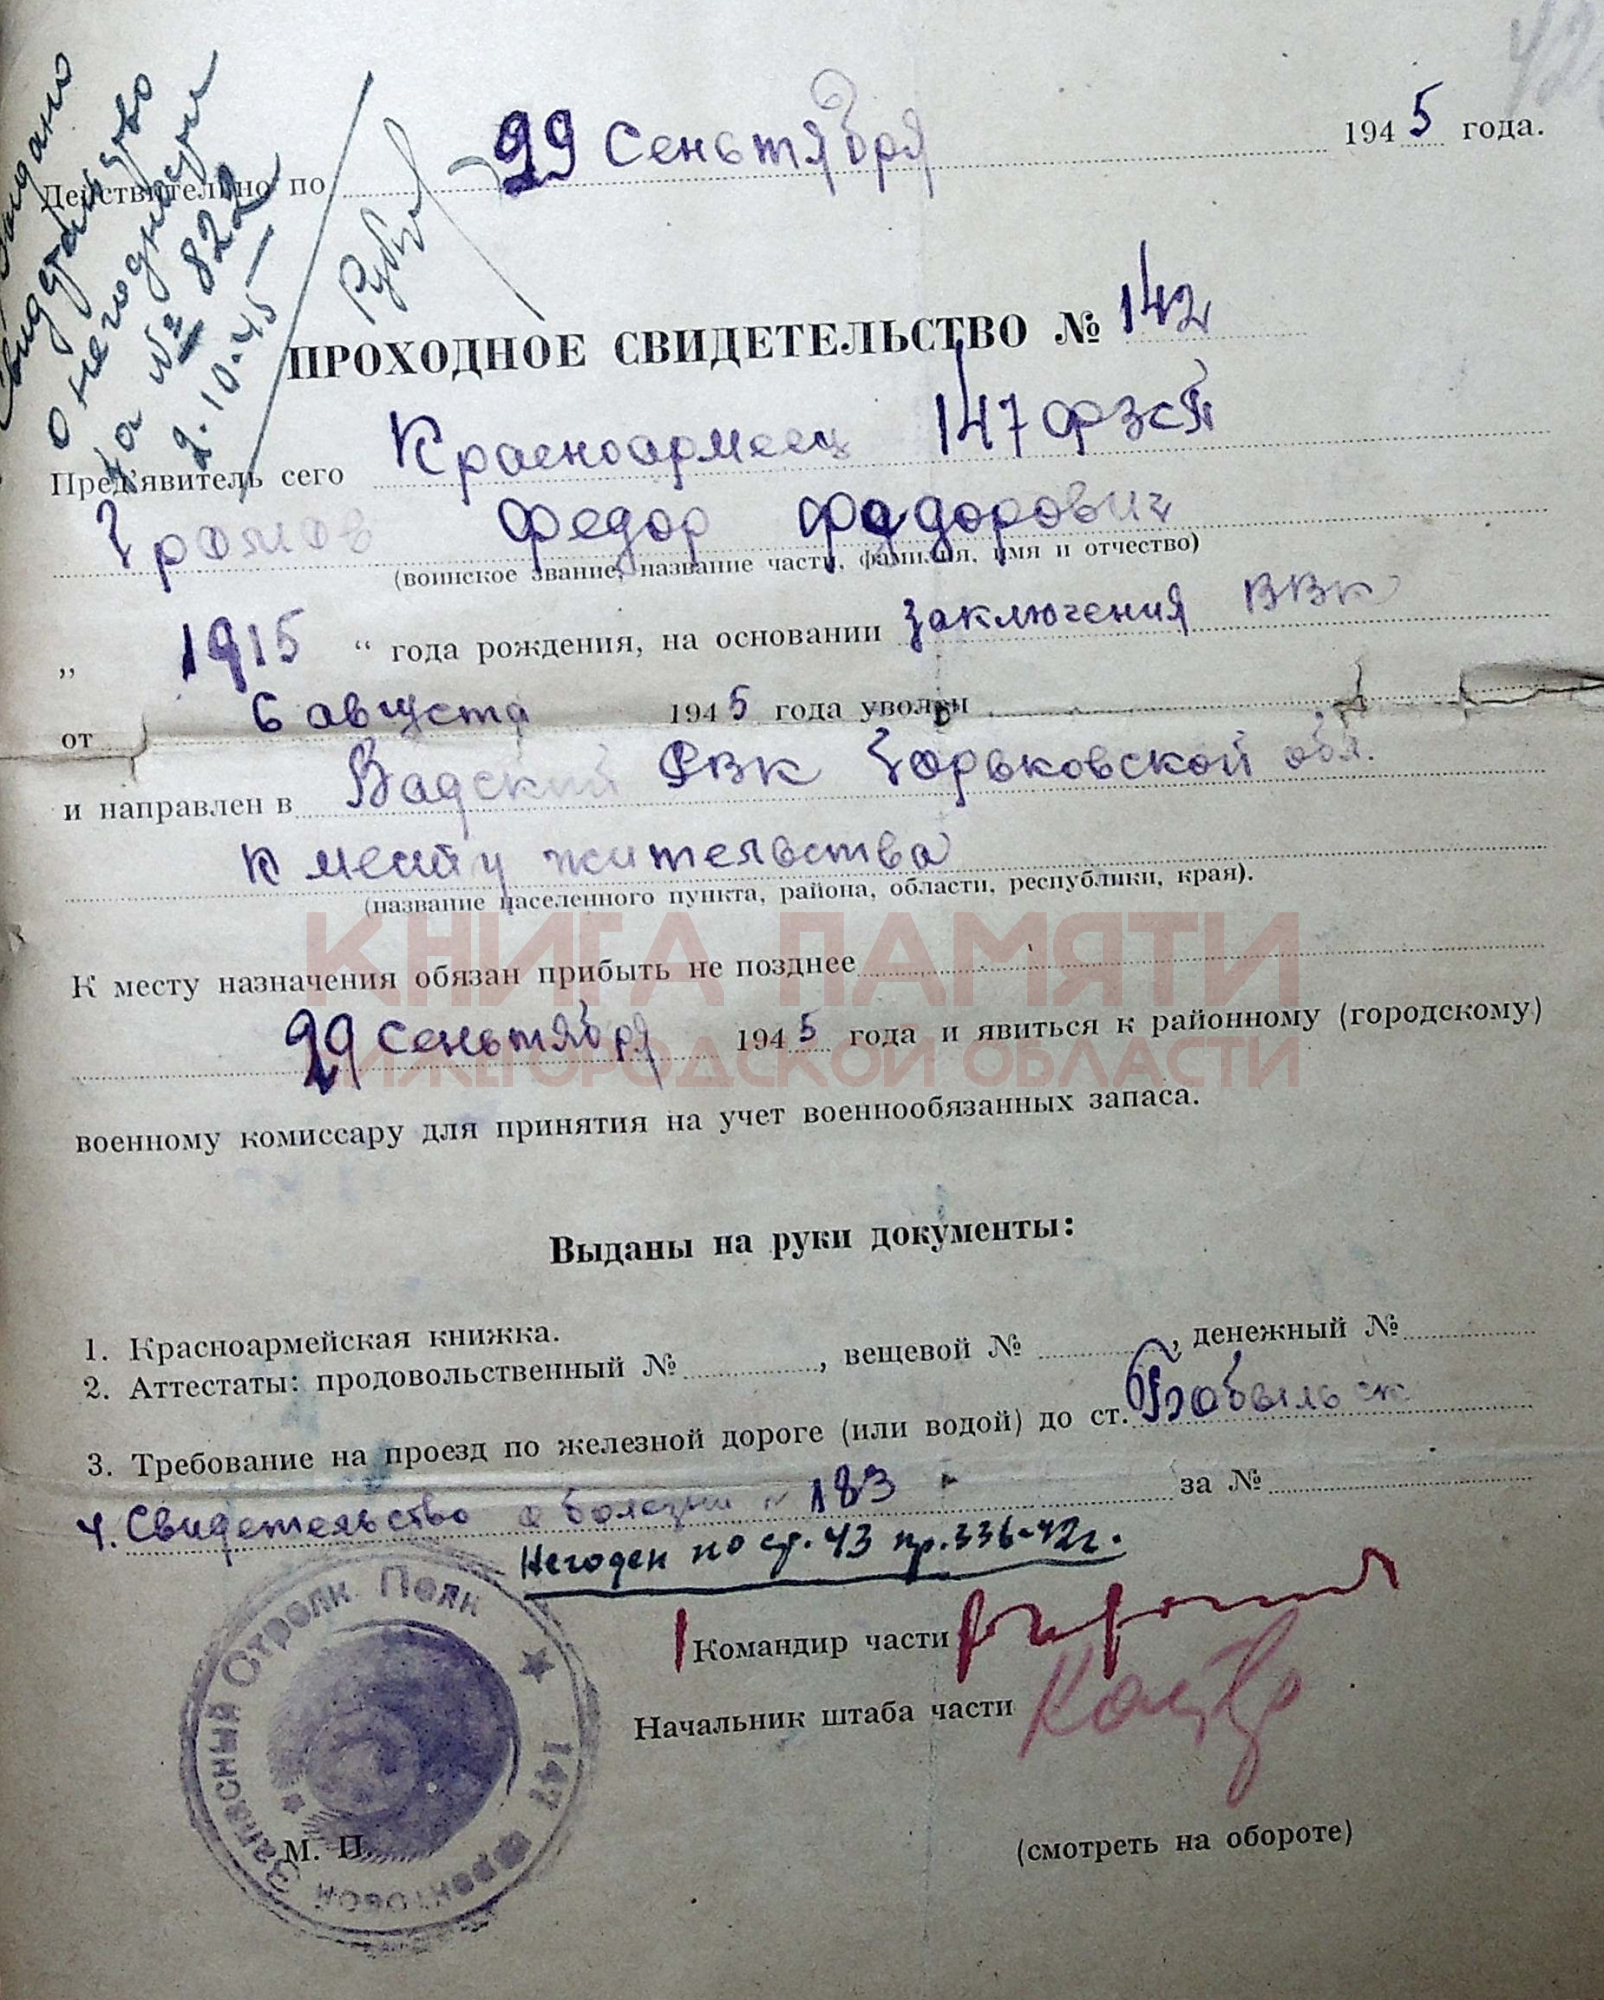 42
Выдано
Свидетельство
о негодности
за № 822
2.10.45
Действительно по 29 Сеньтября 1945 года.
ПРОХОДНОЕ СВИДЕТЕЛЬСТВО № 142
Пред'явитель сего Красноармеец 147 ФЗСП
Громов Федор Федорович
(воинское звание, название части, фамилия, имя и отчество)
„ 1915 “ года рождения, на основании заключения ВВК
от 6 августа 1945 года уволен
и направлен в Вадский РВК Горьковской обл.
К месту жительства
(название населенного пункта, района, области, республики, края).
КНИГА ПАМЯТИ
К месту назначения обязан прибыть не позднее
29 Сеньтября 1945 года и явиться к районному (городскому)
НИЖЕГОРОДСКОЙ ОБЛАСТИ
военному комиссару для принятия на учет военнообязанных запаса.
Выданы на руки документы:
1. Красноармейская книжка.
2. Аттестаты: продовольственный № , вещевой № , денежный №
3. Требование на проезд по железной дороге (или водой) до ст. Бобыльск
за №
4. Свидетельство о болезни № 183
Негоден по ст. 43 пр. 336-42г.
Командир части
Начальник штаба части
147 Фронтовой Запасный Стрелк. Полк
М. П.
(смотреть на обороте)